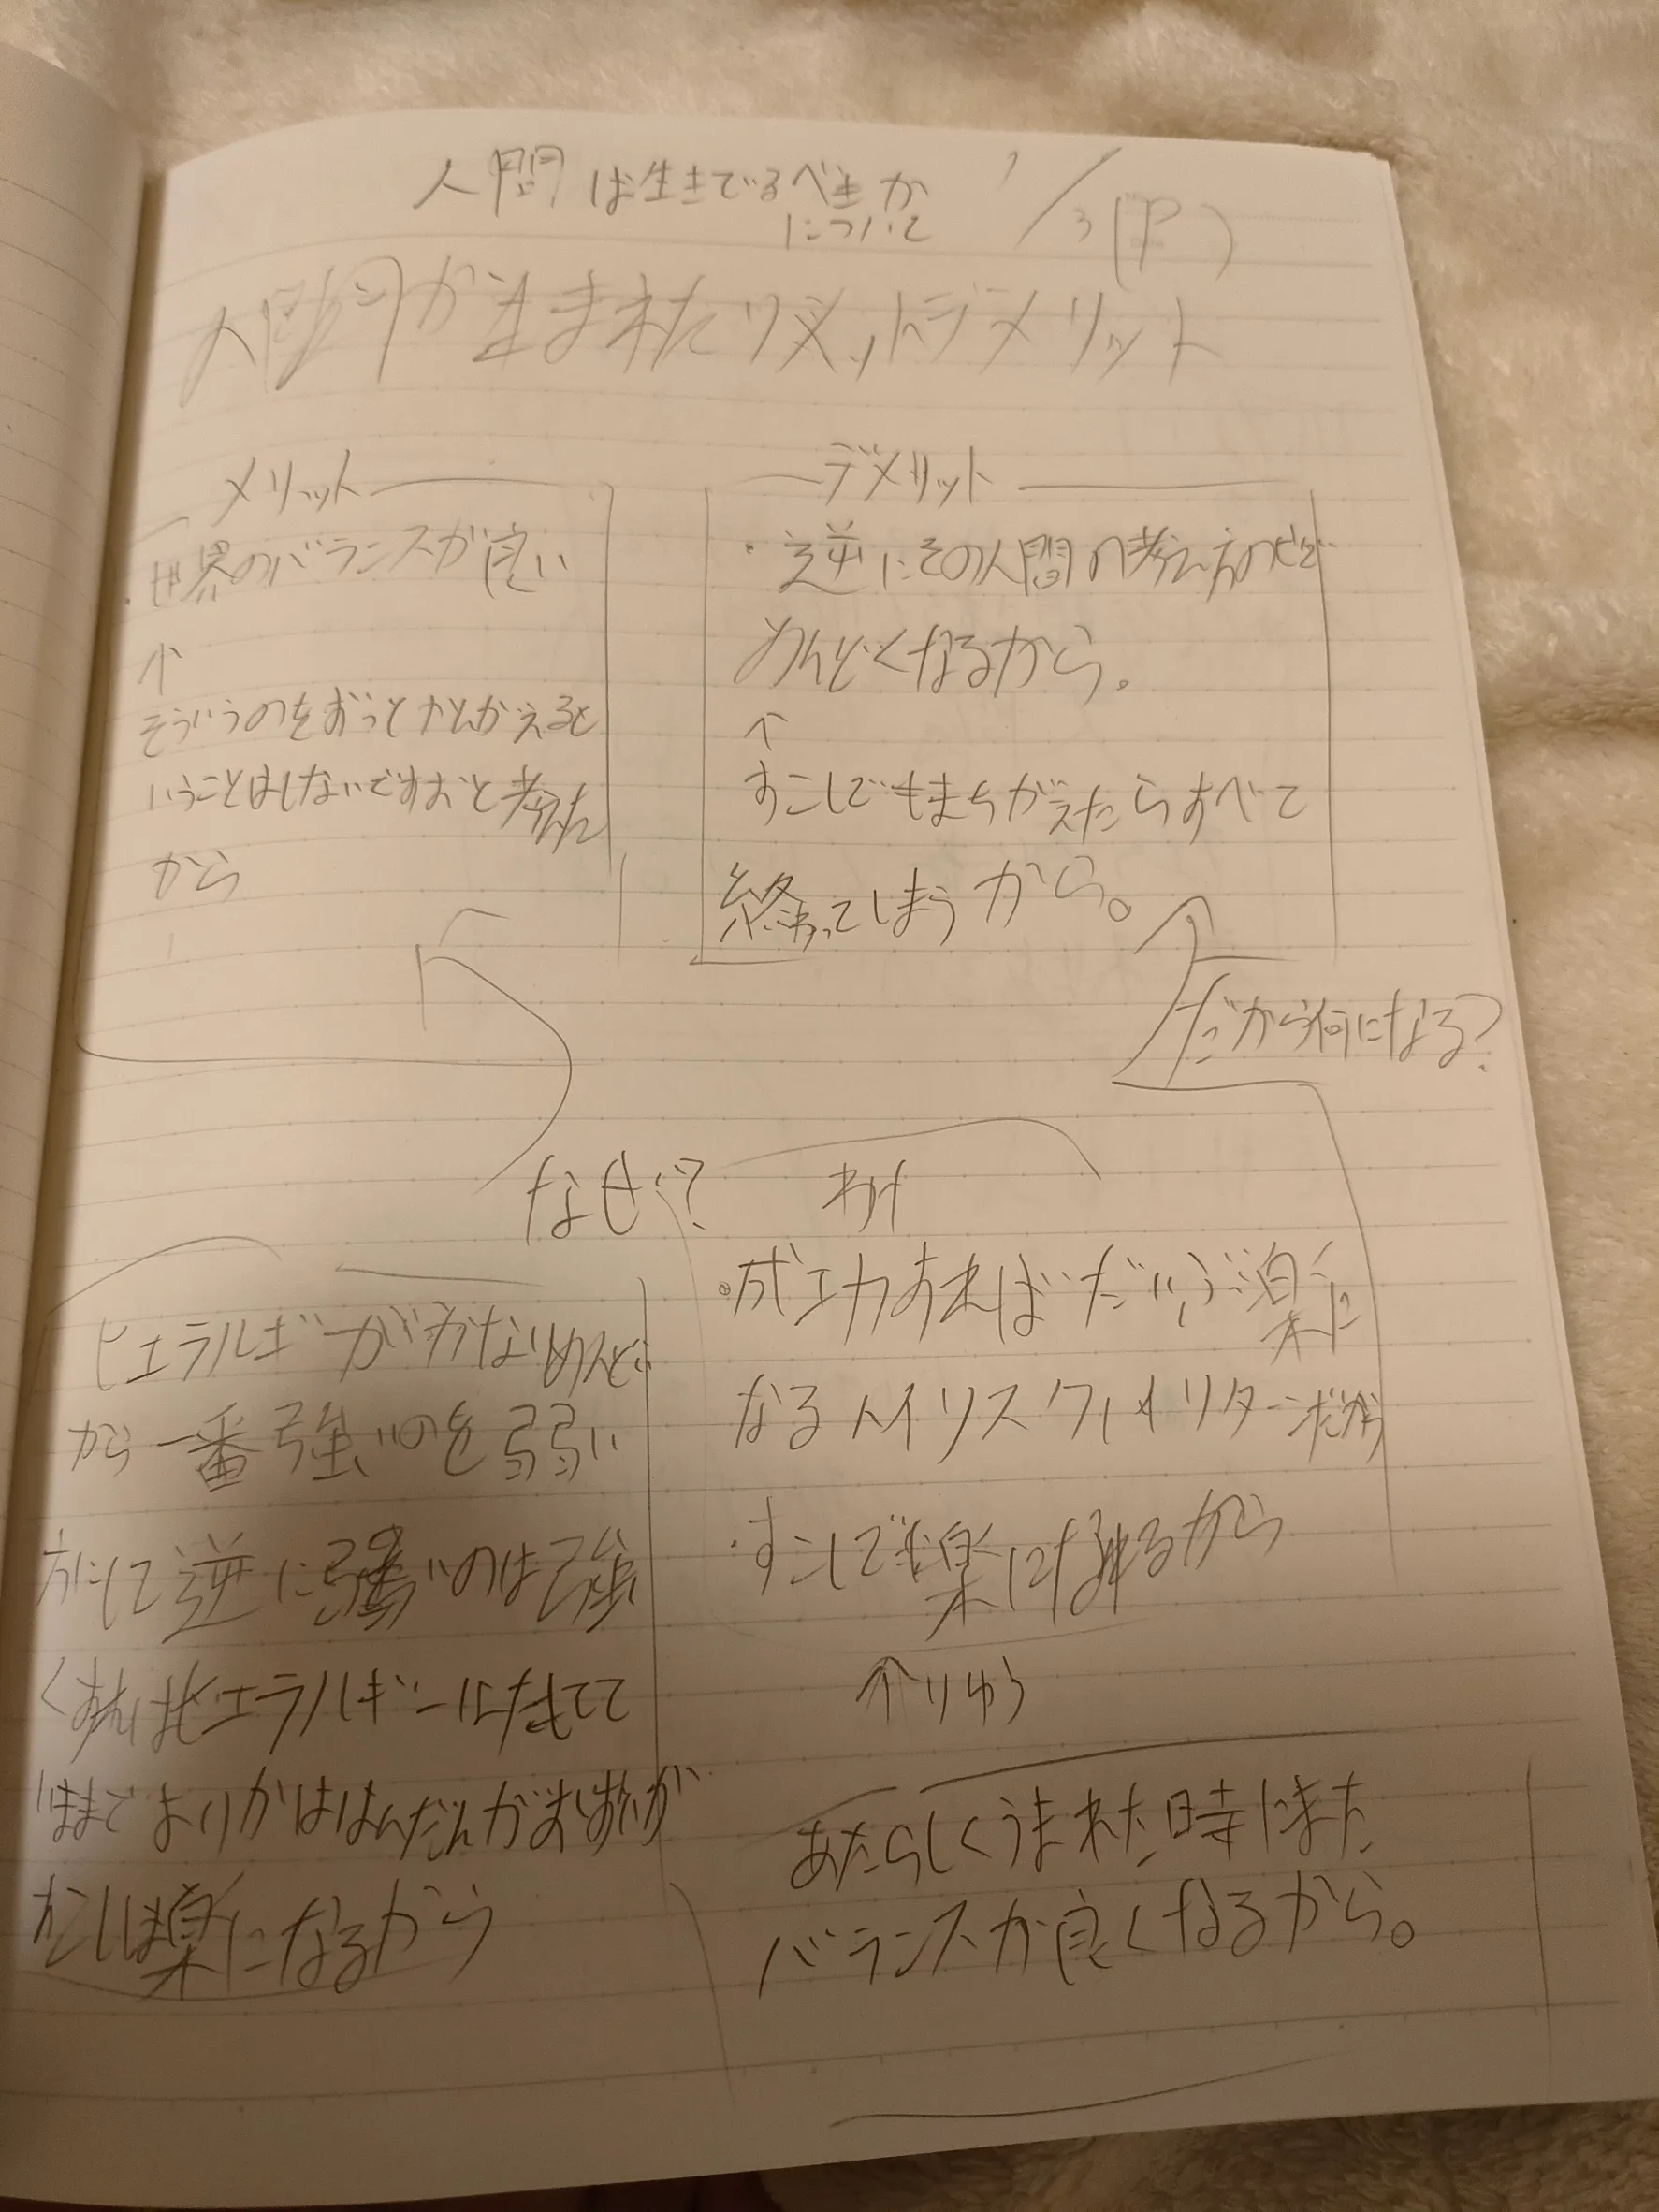 人間は生きでるべきか
について
1/3(P)
人間が生まれたリメットデメリット
メリット
・世界のバランスが良い
↑
そういうのをずっとかんがえると
いうことはしないですむと考えた
から
デメリット
・逆にその人間の考え方のせいで
めんどくなるから。
↑
すこしでもまちがえたらすべて
終わってしまうから。
だから何になる?
なぜ?
ヒエラルギーが
から一番強いのを弱い
方にして逆に強いのは強
くすればヒエラルギーに
楽になるから
・成功すればだいぶ楽に
なるハイリスクハイリターンだから
・すこしでも楽になれるから
↑りゆう
あたらしくうまれた時にまた
バランスが良くなるから。